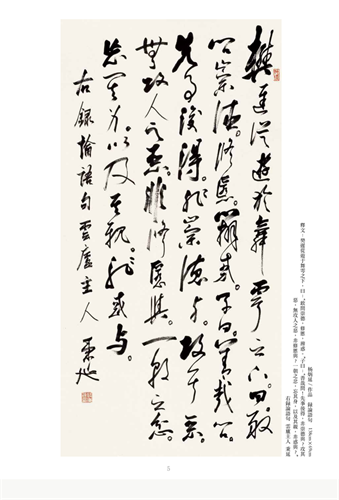 樊遲從遊於舞雩之下。曰。敢
問崇德。修慝。辨惑。子曰。善哉問。
先事後得。非崇德與。攻其惡。
無攻人之惡。非修慝與。一朝之忿。
忘其身。以及其親。非惑與。
右錄論語句 雲廬主人
作品 錄論語句 138cm×69cm
釋文:樊遲從遊于舞雩之下,曰:「敢問崇德、修慝、辨惑。」子曰:「善哉問!先事後得,非崇德與?攻其
惡,無攻人之惡,非修慝與?一朝之忿,忘其身,以及其親,非惑與?」
右錄論語句 雲廬主人 秉延
5